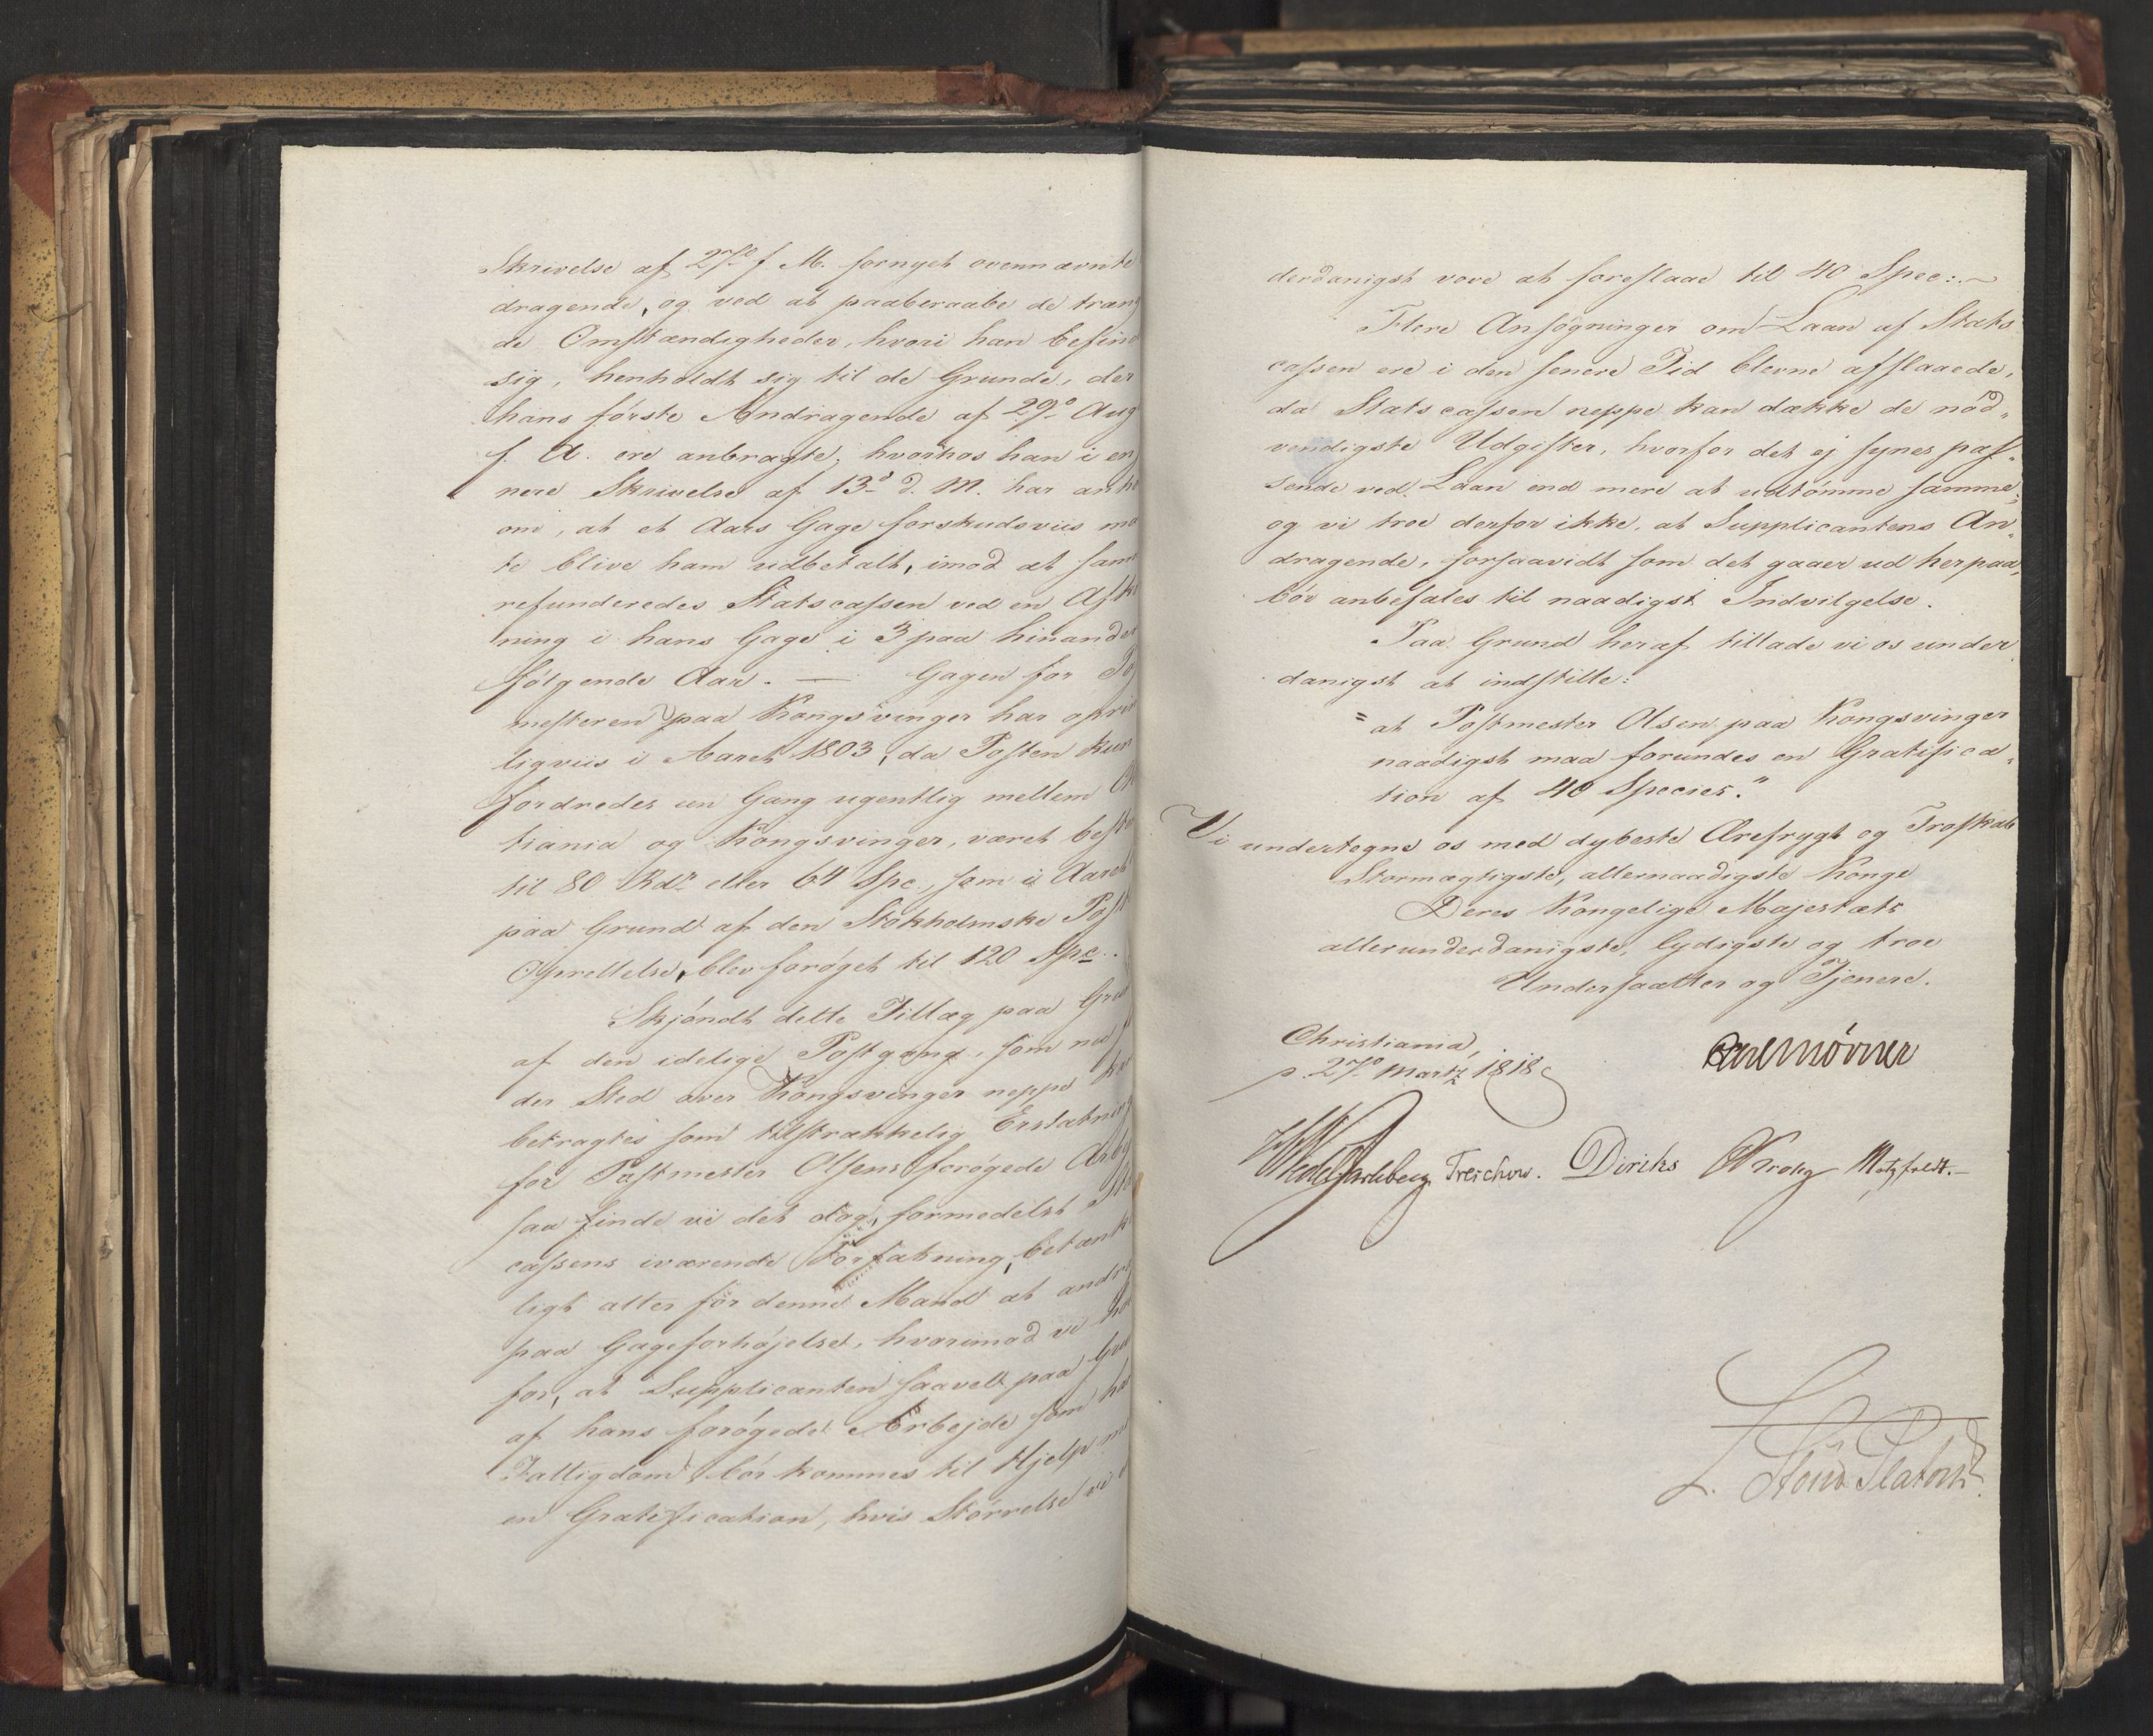 Skrivelse af 27de f. M. fornyet ovennævnte
dragende, og ved at paaberaabe de træng
de Omstændigheder, hvori han befind
sig, henholdt sig til de Grunde, der
hans første Andragende af 29de Aug
f. A. ere anbragte; hvorhos han i en
nere Skrivelse af 13de d. M. har anho
om, at et Aars Gage forskudsviis ma
te blive ham udbetalt, imod at sam
refunderedes Statscassen ved en Afko
ning i hans Gage i 3 paa hinanden
følgende Aar. — Gagen for Po
mesteren paa Kongsvinger har oprin
ligviis i Aaret 1803, da Posten kun
fordredes en Gang ugentlig mellem Ch
tiania og Kongsvinger, været beste
til 80 Rdr eller 64 Spc., som i Aaret
paa Grund af den Stokholmske Post
Oprettelse, blev forøget til 120 Spc.
Skjøndt dette Tillæg paa Gru
af den idelige Postgang, som nu f
der Sted over Kongsvinger neppe ka
betragtes som tilstrækkelig Erstatning
for Postmester Olsens forøgede Arbej
saa finde vi det dog, formedelst St
cassens iværende Forfatning, betænk
ligt atter for denne Mand at andra
paa Gageforhøjelse, hvorimod vi ho
for, at Supplicanten saavel paa Gru
af hans forøgede Arbejde som ha
Fattigdom bør kommes til Hjelp me
en Gratification, hvis Størrelse vi
derdanigst vove at foreslaae til 40 Spec:
Flere Ansøgninger om Laan af Stats
cassen ere i den senere Tid blevne afslaaede,
da Statscassen neppe kan dække de nød-
vendigste Udgifter, hvorfor det ej synes pas-
sende ved Laan end mere at udtømme samme;
og vi troe derfor ikke, at Supplicantens An-
dragende, forsaavidt som det gaaer ud herpaa,
bør anbefales til naadigst Indvilgelse.
Paa Grund heraf tillade vi os under
danigst at indstille:
"at Postmester Olsen paa Kongsvinger
naadigst maa forundes en Gratifica-
tion af 40 Species."
Vi undertegne os med dybeste Ærefrygt og Troskab
Stormægtigste, allernaadigste Konge
Deres Kongelige Majestæts
allerunderdanigste, lydigste og troe
Undersaatter og Tjenere.
Christiania,
d. 27de Martz 1818
Carl Mörner
Wedel Jarlsberg Treschow. Diriks Krohg Motzfeldt.